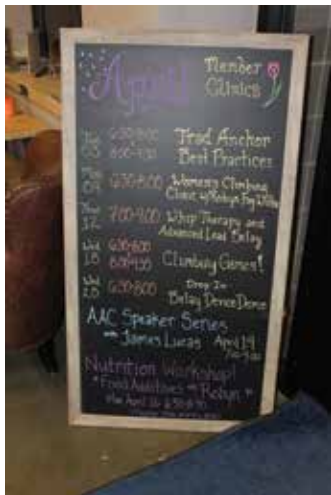 April
Member
Clinics
Tue
03
6:30-8:00
8:00-9:30
Trad Anchor
Best Practices
Mon
09
6:30-8:00
Women's Climbing
Clinic w/Robyn
Thur
12
7:00-9:00
Whip Therapy and
Advanced Lead Belay
Wed
18
6:30-8:00
8:00-9:30
Climbing Games!
Wed
25
6:30-8:00
Drop In
Belay Dence Dence
AAC Speaker Series
James Lucas April 19
Nutrition Workshop!
"Food Additives Robyn"
April 16 6:30-8:30